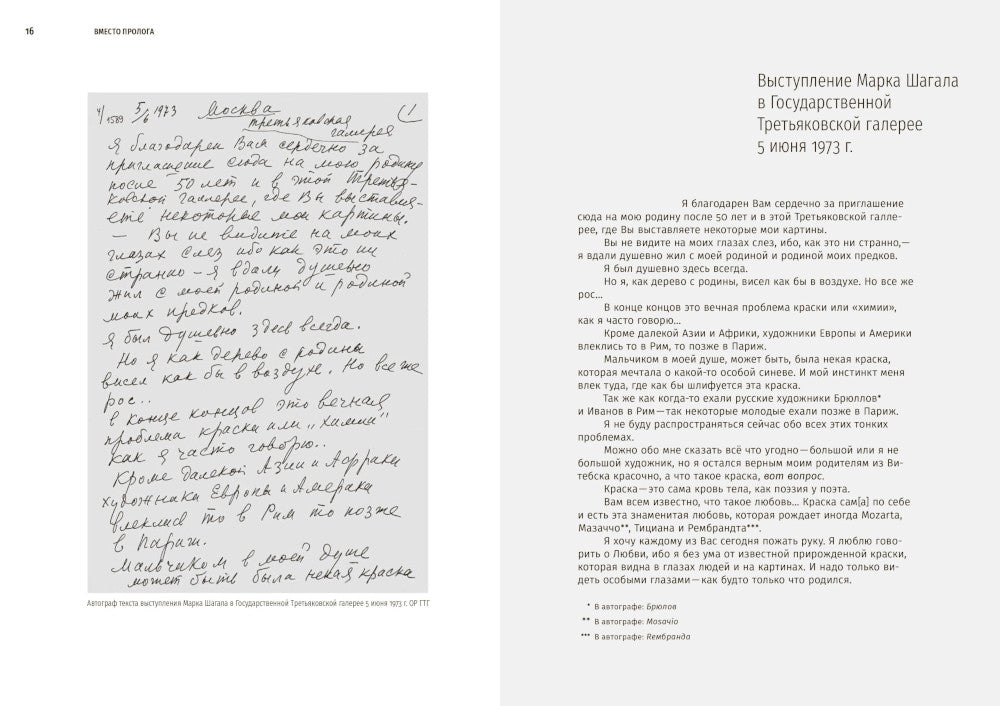 16
ВМЕСТО ПРОЛОГА
4/1589 5/6 1973 Москва (1
третьяковская
галерея
Я благодарен Вам сердечно за
приглашение сюда на мою родину
после 50 лет и в этой Третья-
ковской галлерее, где Вы выставля-
ете некоторые мои картины.
— Вы не видите на моих
глазах слез ибо как это ни
странно – я вдали душевно
жил с моей родиной и родиной
моих предков.
Я был душевно здесь всегда.
Но я как дерево с родины
висел как бы в воздухе. Но все же
рос..
в конце концов это вечная
проблема краски или „химии"
как я часто говорю..
Кроме далекой Азии и Африки
художники Европы и Америки
влеклись то в Рим то позже
в Париж.
Мальчиком в моей душе
может быть была некая краска
Автограф текста выступления Марка Шагала в Государственной Третьяковской галерее 5 июня 1973 г. ОР ГТГ
Выступление Марка Шагала
в Государственной
Третьяковской галерее
5 июня 1973 г.
Я благодарен Вам сердечно за приглашение
сюда на мою родину после 50 лет и в этой Третьяковской галле-
рее, где Вы выставляете некоторые мои картины.
Вы не видите на моих глазах слез, ибо, как это ни странно,—
я вдали душевно жил с моей родиной и родиной моих предков.
Я был душевно здесь всегда.
Но я, как дерево с родины, висел как бы в воздухе. Но все же
рос…
В конце концов это вечная проблема краски или «химии»,
как я часто говорю…
Кроме далекой Азии и Африки, художники Европы и Америки
влеклись то в Рим, то позже в Париж.
Мальчиком в моей душе, может быть, была некая краска,
которая мечтала о какой-то особой синеве. И мой инстинкт меня
влек туда, где как бы шлифуется эта краска.
Так же как когда-то ехали русские художники Брюллов*
и Иванов в Рим—так некоторые молодые ехали позже в Париж.
Я не буду распространяться сейчас обо всех этих тонких
проблемах.
Можно обо мне сказать всё что угодно—большой или я не
большой художник, но я остался верным моим родителям из Ви-
тебска красочно, а что такое краска, вот вопрос.
Краска—это сама кровь тела, как поэзия у поэта.
Вам всем известно, что такое любовь… Краска сам[а] по себе
и есть эта знаменитая любовь, которая рождает иногда Mozarta,
Мазаччо**, Тициана и Рембрандта***.
Я хочу каждому из Вас сегодня пожать руку. Я люблю гово-
рить о Любви, ибо я без ума от известной прирожденной краски,
которая видна в глазах людей и на картинах. И надо только ви-
деть особыми глазами—как будто только что родился.
* В автографе: Брюлов
** В автографе: Mosaчio
*** В автографе: Rембранда